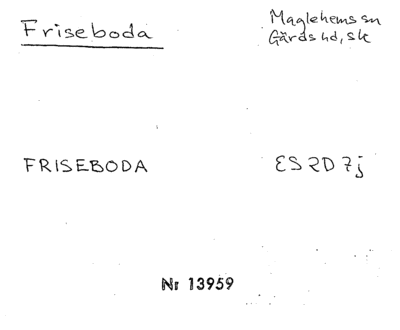 Friseboda
Maglehems sn
Gärds hd, Sk
FRISEBODA
ES 2D 7j
Nr 13959